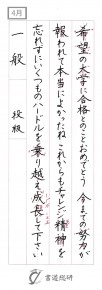 4月
希望の大学に合格とのことおめでとう 今までの努力が
報われて本当によかったね これからもチャレンジ精神を
忘れずにいくつものハードルを乗り越え成長して下さい
一般 段級
書道総研